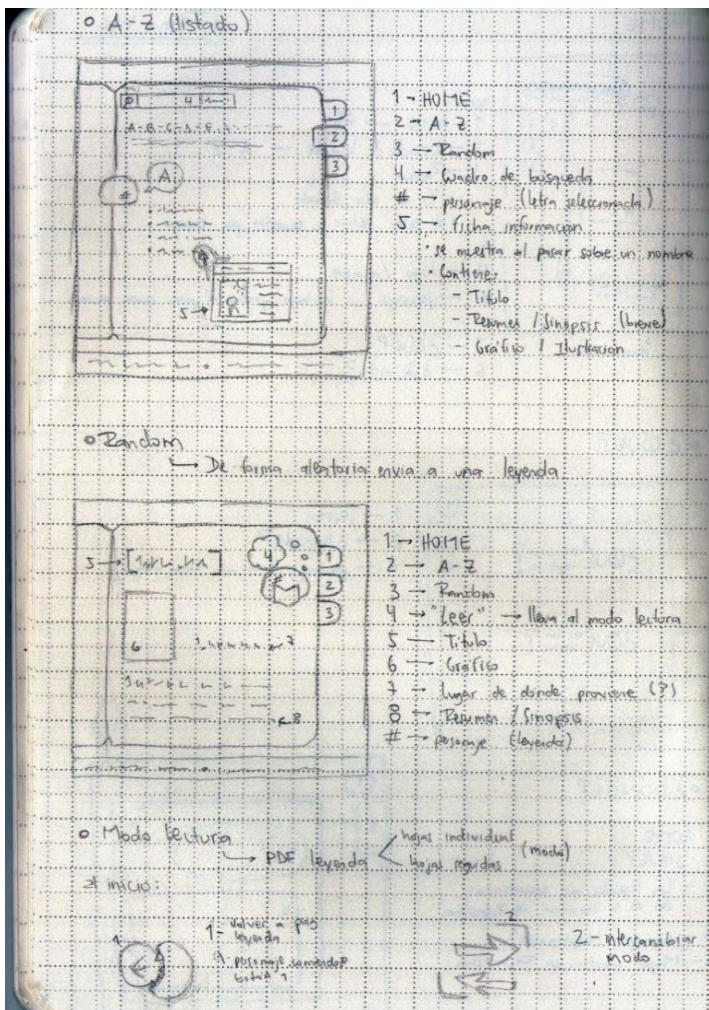 o A-Z (listado)
1 → HOME
2 → A-Z
3 → Random
4 → Cuadro de búsqueda
# → personaje (letra seleccionada)
5 → ficha información
· se muestra al pasar sobre un nombre
· Contiene:
- Título
- Resumen / Sinopsis (breve)
- Gráfico / Ilustración
4
A-B-C-D-E
A
#
5 →
1
2
3
o Random
De forma aleatoria envia a una leyenda
1 → HOME
2 → A-Z
3 → Random
4 → "Leer" → lleva al modo lectura
5 → Título
6 → Gráfico
7 → lugar de donde proviene (?)
8 → Resumen / Sinopsis
# → personaje (leyendo)
5 →
4
1
2
3
6
7
8
o Modo lectura
PDF leyenda
hojas individual
hojas seguidas
(modo)
* inicio:
1 - volver a pag
leyenda
# personaje comiendose
1
2
2 - intercambiar
modo